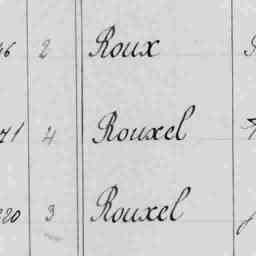 46 2 Roux
71 4 Rouxel
220 3 Rouxel